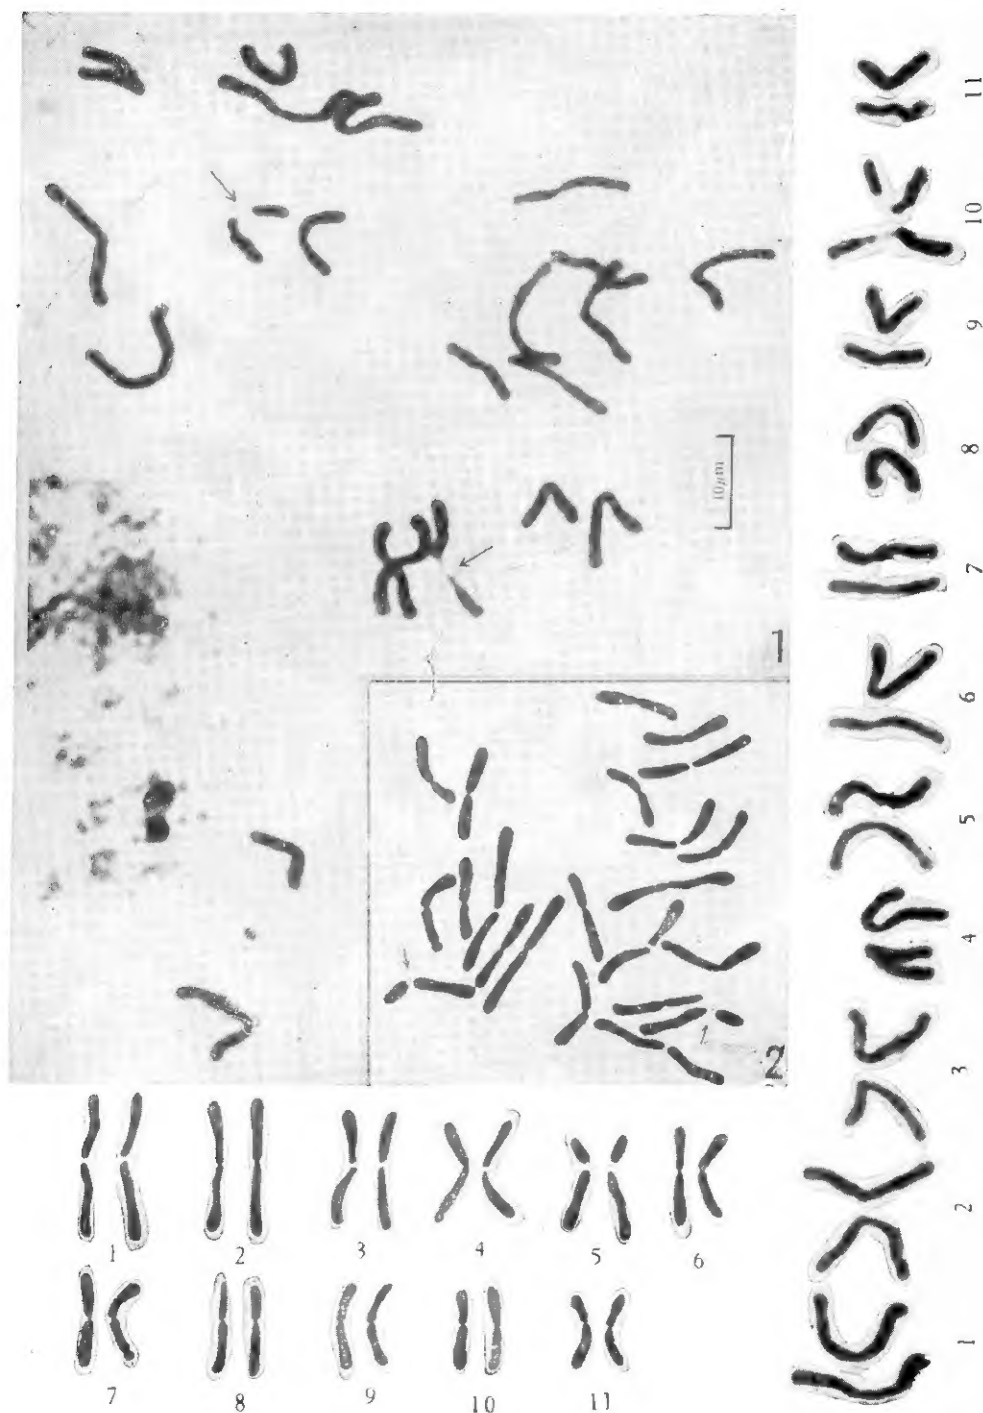 10μm
1
2
1 2 3 4 5 6
7 8 9 10 11
1 2 3 4 5 6 7 8 9 10 11